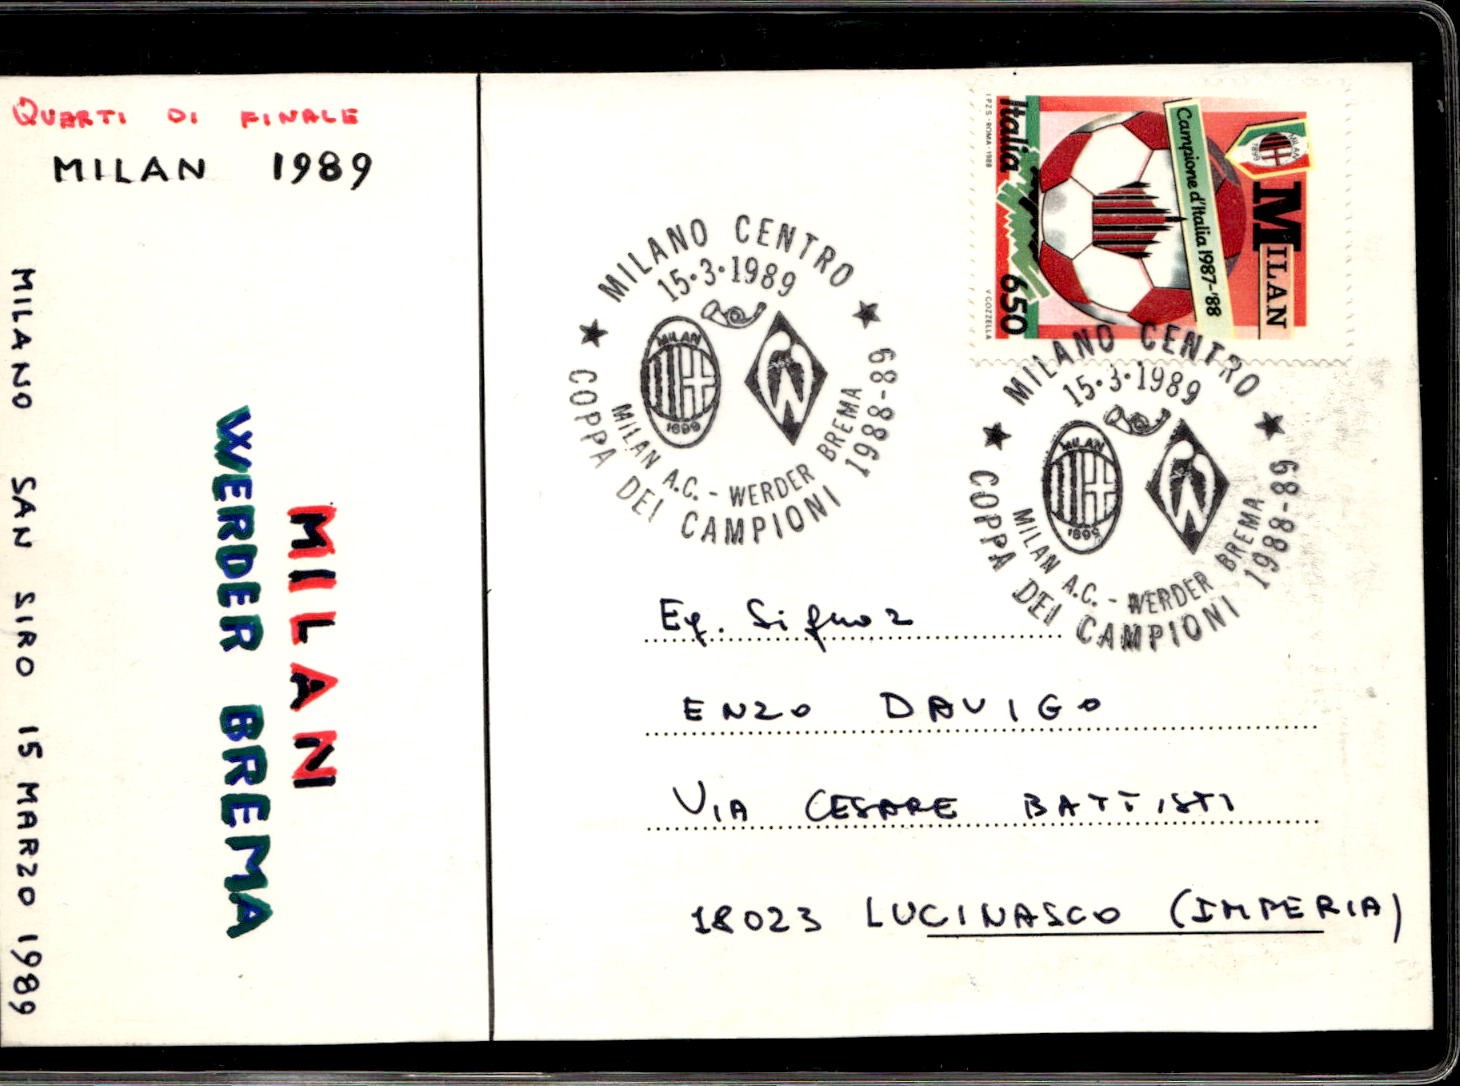 QUARTI DI FINALE
MILAN 1989
MILANO SAN SIRO 15 MARZO 1989
MILAN
WERDER BREMA
MILANO CENTRO
15·3·1989
MILAN
1899
MILAN A.C. - WERDER BREMA
COPPA DEI CAMPIONI 1988-89
Italia 650
I.P.Z.S. - ROMA - 1988
V COZZELLA
Campione d'Italia 1987-'88
MILAN
1899
MILAN
MILANO CENTRO
15·3·1989
MILAN
1899
MILAN A.C. - WERDER BREMA
COPPA DEI CAMPIONI 1988-89
Eg. Signor
ENZO DAVIGO
VIA CESARE BATTISTI
18023 LUCINASCO (IMPERIA)